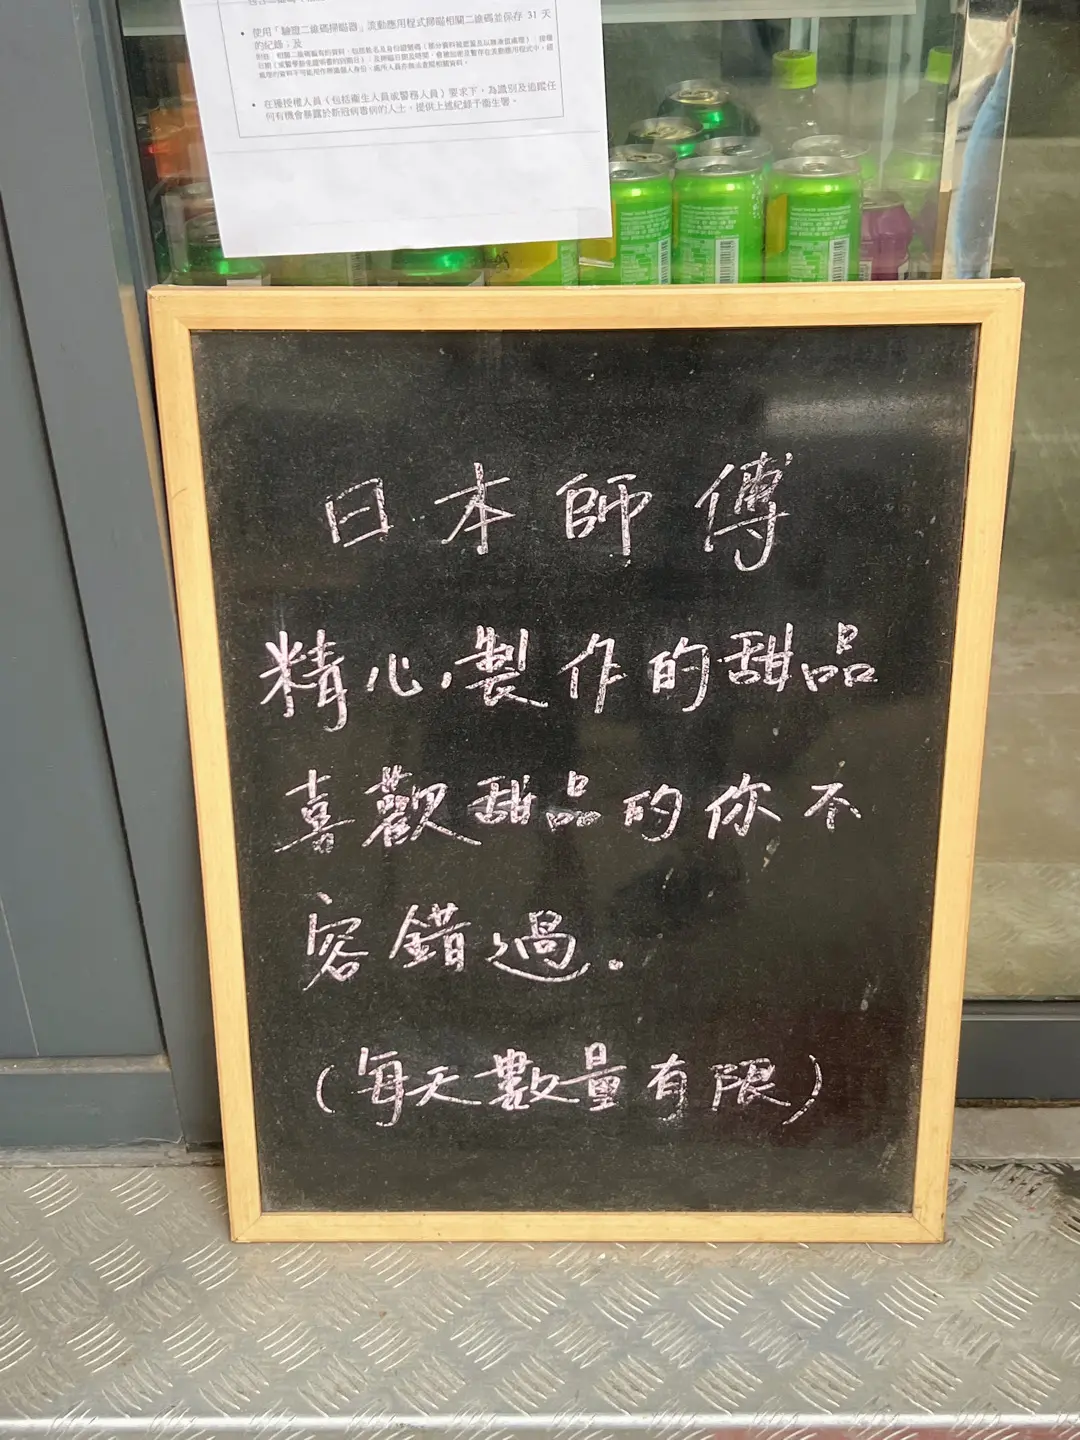 使用「驗證二維碼掃瞄器」流動應用程式掃瞄相關二維碼並保存 31 天
的紀錄；及
在獲授權人員（包括衞生人員或警務人員）要求下，為識別及追蹤任
何有機會暴露於新冠病毒病的人士，提供上述紀錄予衞生署。
日本師傅
精心製作的甜品
喜歡甜品的你不
容錯過.
(每天數量有限)